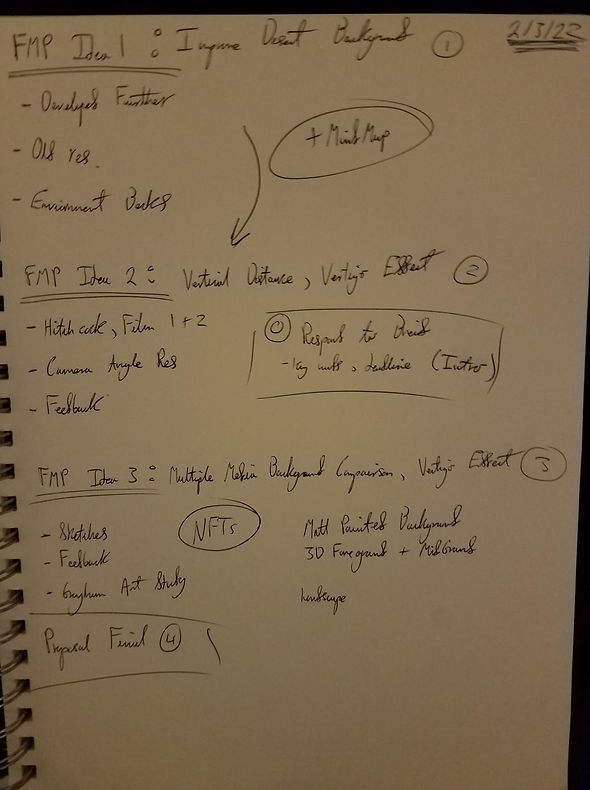 FMP Idea 1 : Improve Desert Background 1
2/3/22
- Develop Further
+ Mind Map
- Old res.
- Enviornment Backs
FMP Idea 2 : Distance, Vertigo Effect 2
- Hitchcock, Film 1+2
- Camera Angle Res
- Feedback
0 Respond to
, deadline (Intro)
FMP Idea 3 : Multiple Media Background Comparison, Vertigo Effect 3
- Sketches
- Feedback
- Art Study
NFTs
Matt Painted Background
3D Foreground + MidGround
landscape
Proposal Final 4